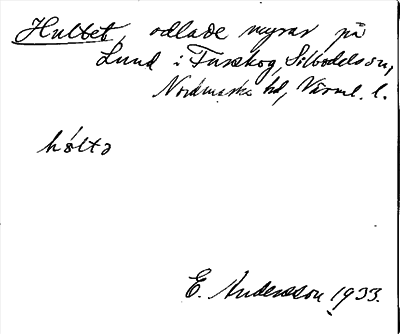 Hultet, odlade myrar på
Lund i Fuskog, Silbodals sn,
Nordmarks hd, Värml. l.
hólta
E. Andersson 1933.